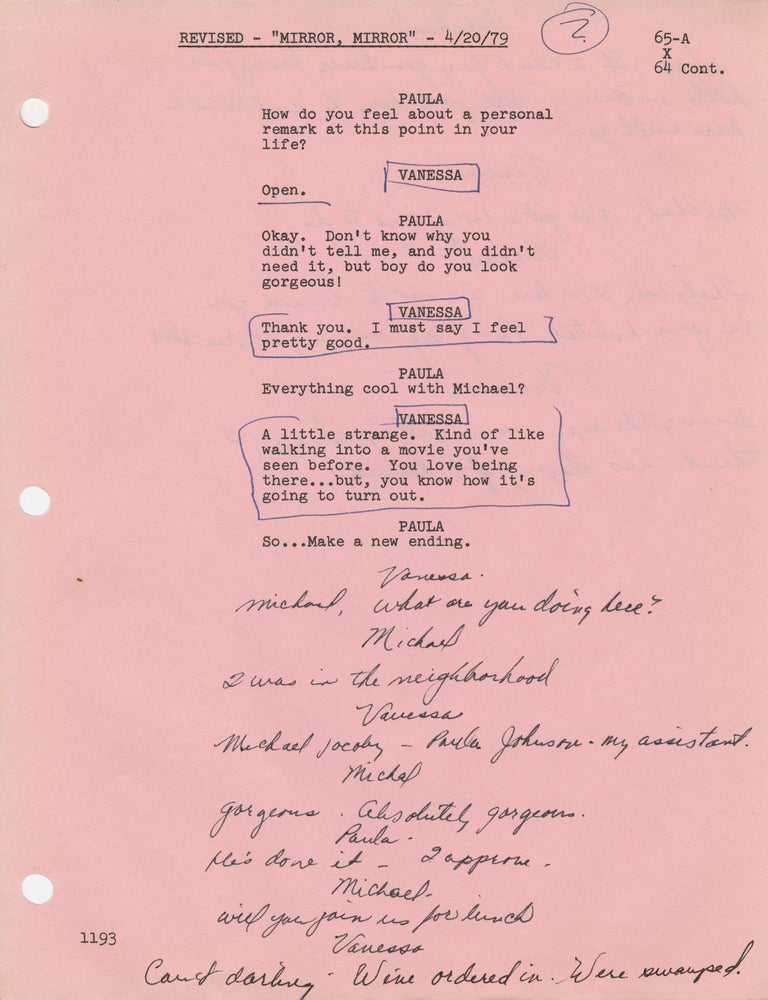 REVISED - "MIRROR, MIRROR" - 4/20/79
?
65-A
X
64 Cont.
PAULA
How do you feel about a personal
remark at this point in your
life?
VANESSA
Open.
PAULA
Okay.  Don't know why you
didn't tell me, and you didn't
need it, but boy do you look
gorgeous!
VANESSA
Thank you.  I must say I feel
pretty good.
PAULA
Everything cool with Michael?
VANESSA
A little strange.  Kind of like
walking into a movie you've
seen before.  You love being
there...but, you know how it's
going to turn out.
PAULA
So...Make a new ending.
Vanessa.
Michael, what are you doing here?
Michael
I was in the neighborhood
Vanessa
Michael Jacoby - Paula Johnson - my assistant.
Michael
gorgeous. Absolutely gorgeous.
Paula.
He's done it - I approve.
Michael.
will you join us for lunch
Vanessa
1193
Can't darling - We've ordered in. We're swamped.